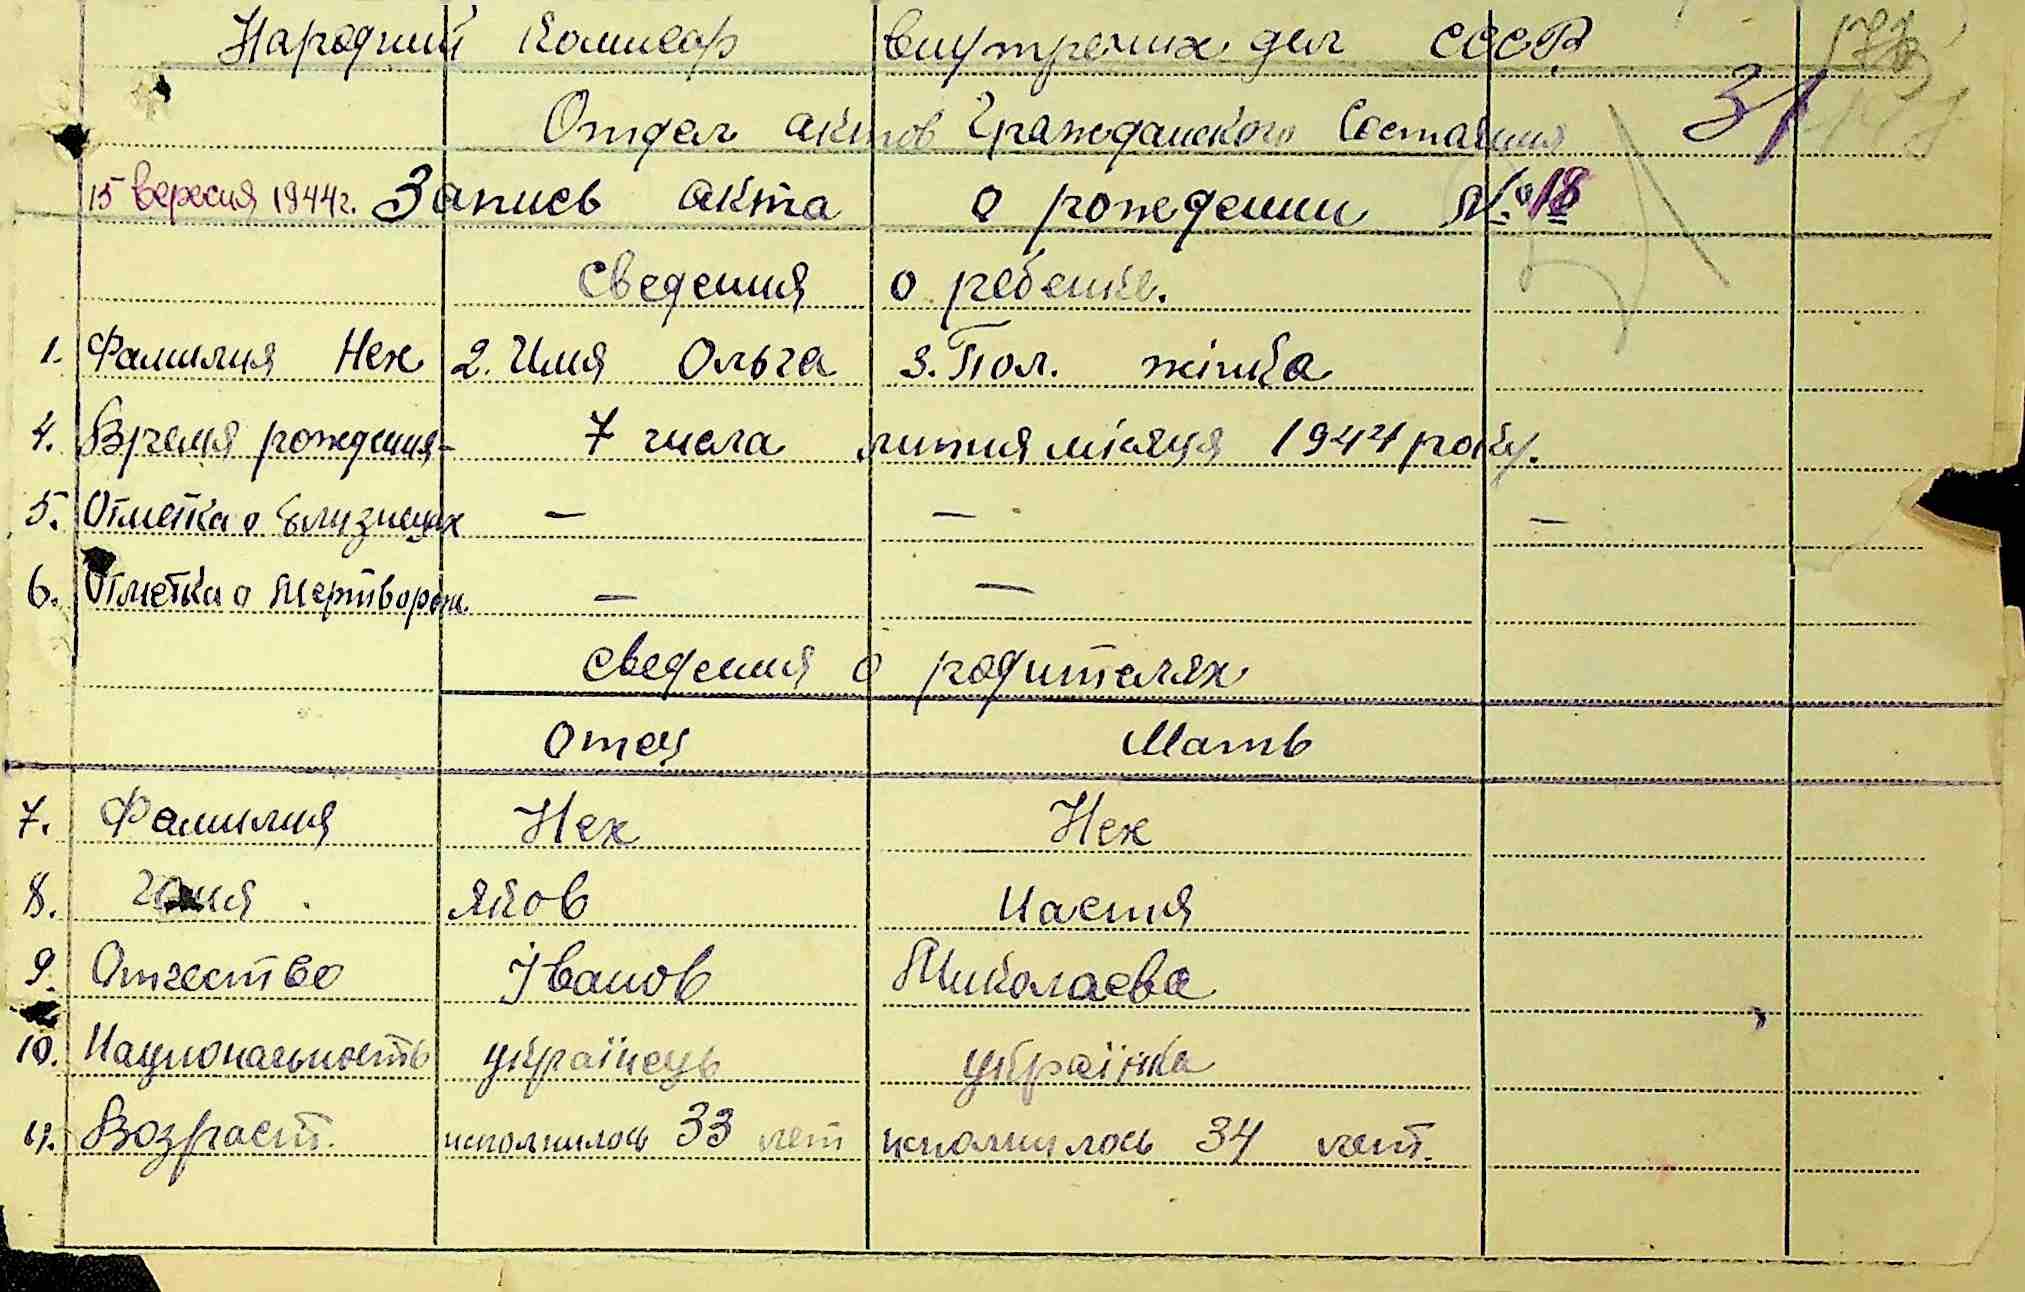 Народний Комисар внутрених дел СССР.
Отдел актов Гражданского Состаяния 31
15 вересня 1944г. Запись акта о рождении №18
Сведения о ребенке.
1. Фамилия Нех 2. Имя Ольга 3. Пол. жінка
4. Время рождения- 7 числа липня місяця 1944 року.
5. Отметка о близнецах - - -
6. Отметка о мертворож. - -
Сведения о родителях
Отец Мать
7. Фамилия Нех Нех
8. Имя Яков Настя
9. Отчество Іванов Миколаева
10. Национальность українець українка
11. Возраст. исполнилось 33 лет исполнилось 34 лет.